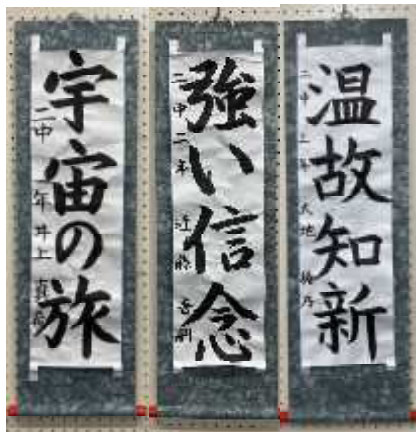 宇宙の旅
二中 一年 井上
強い信念
二中 二年 近藤
温故知新
二中 三年